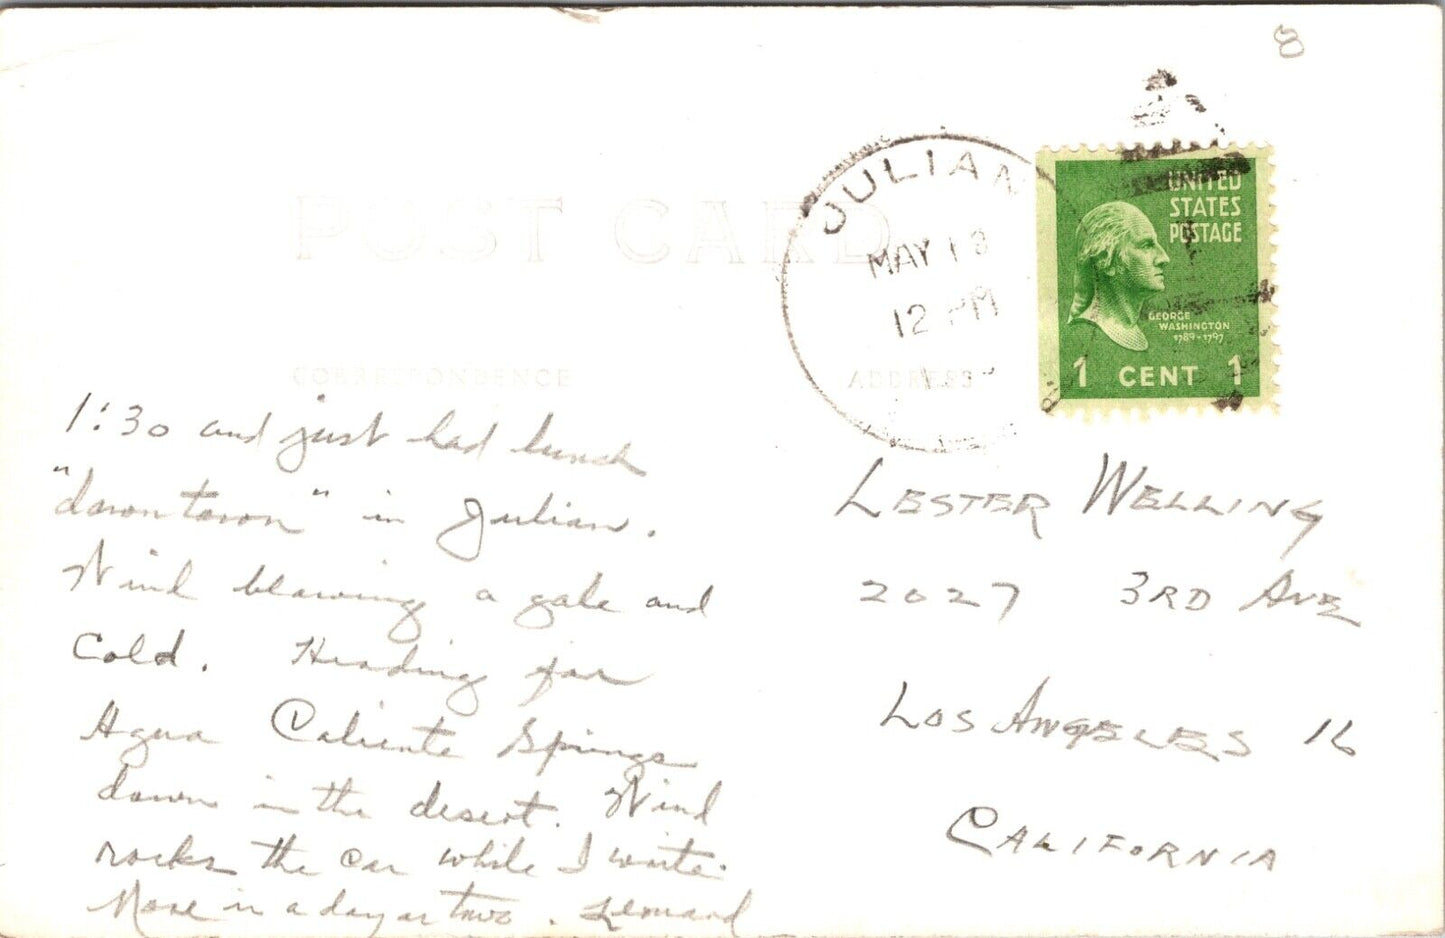 8
POST CARD
JULIAN
MAY 13
12 PM
UNITED
STATES
POSTAGE
GEORGE
WASHINGTON
1789-1797
1 CENT 1
CORRESPONDENCE
ADDRESS
1:30 and just had lunch
"downtown" in Julian.
Wind blowing a gale and
Cold. Heading for
Agua Caliente Springs
down in the desert. Wind
rocks the car while I write.
More in a day or two. Leonard
LESTER WELLING
2027 3RD AVE
LOS ANGELES 16
CALIFORNIA